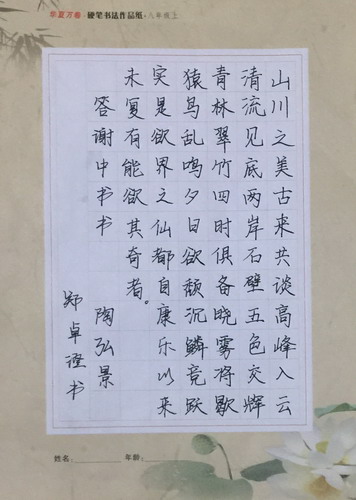 华夏万卷 硬笔书法作品纸·八年级上
山川之美古来共谈高峰入云
清流见底两岸石壁五色交辉
青林翠竹四时俱备晓雾将歇
猿鸟乱鸣夕日欲颓沉鳞竞跃
实是欲界之仙都自康乐以来
未复有能欲其奇者。
答谢中书书 陶弘景
郑卓澄书
姓名：________ 年龄：________